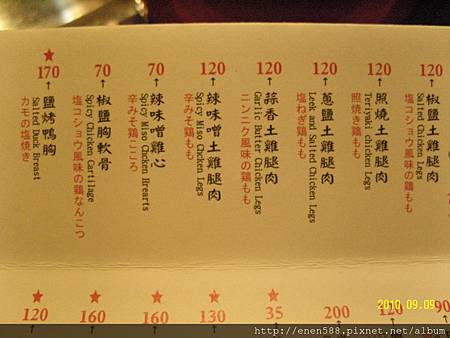 120
椒鹽土雞腿肉
Salted Chicken Legs
塩コショウ風味の鶏もも
120
照燒土雞腿肉
Teriyaki chicken Legs
照焼き鶏もも
120
蔥鹽土雞腿肉
Leek and Salted Chicken Legs
塩ねぎ鶏もも
120
蒜香土雞腿肉
Garlic Butter Chicken Legs
ニンニク風味の鶏もも
120
辣味噌土雞腿肉
Spicy Miso Chcken Legs
辛みそ鶏もも
70
辣味噌雞心
Spicy Miso Chcken Hrearts
辛みそ鶏こころ
70
椒鹽胸軟骨
Spicy Chicken Cartilage
塩コショウ風味の鶏なんこつ
★
170
鹽烤鴨胸
Salted Duck Breast
カモの塩焼き
90
120
200
★
35
★
130
★
160
★
160
★
120
2010.09.09
http://enen588.pixnet.net/album